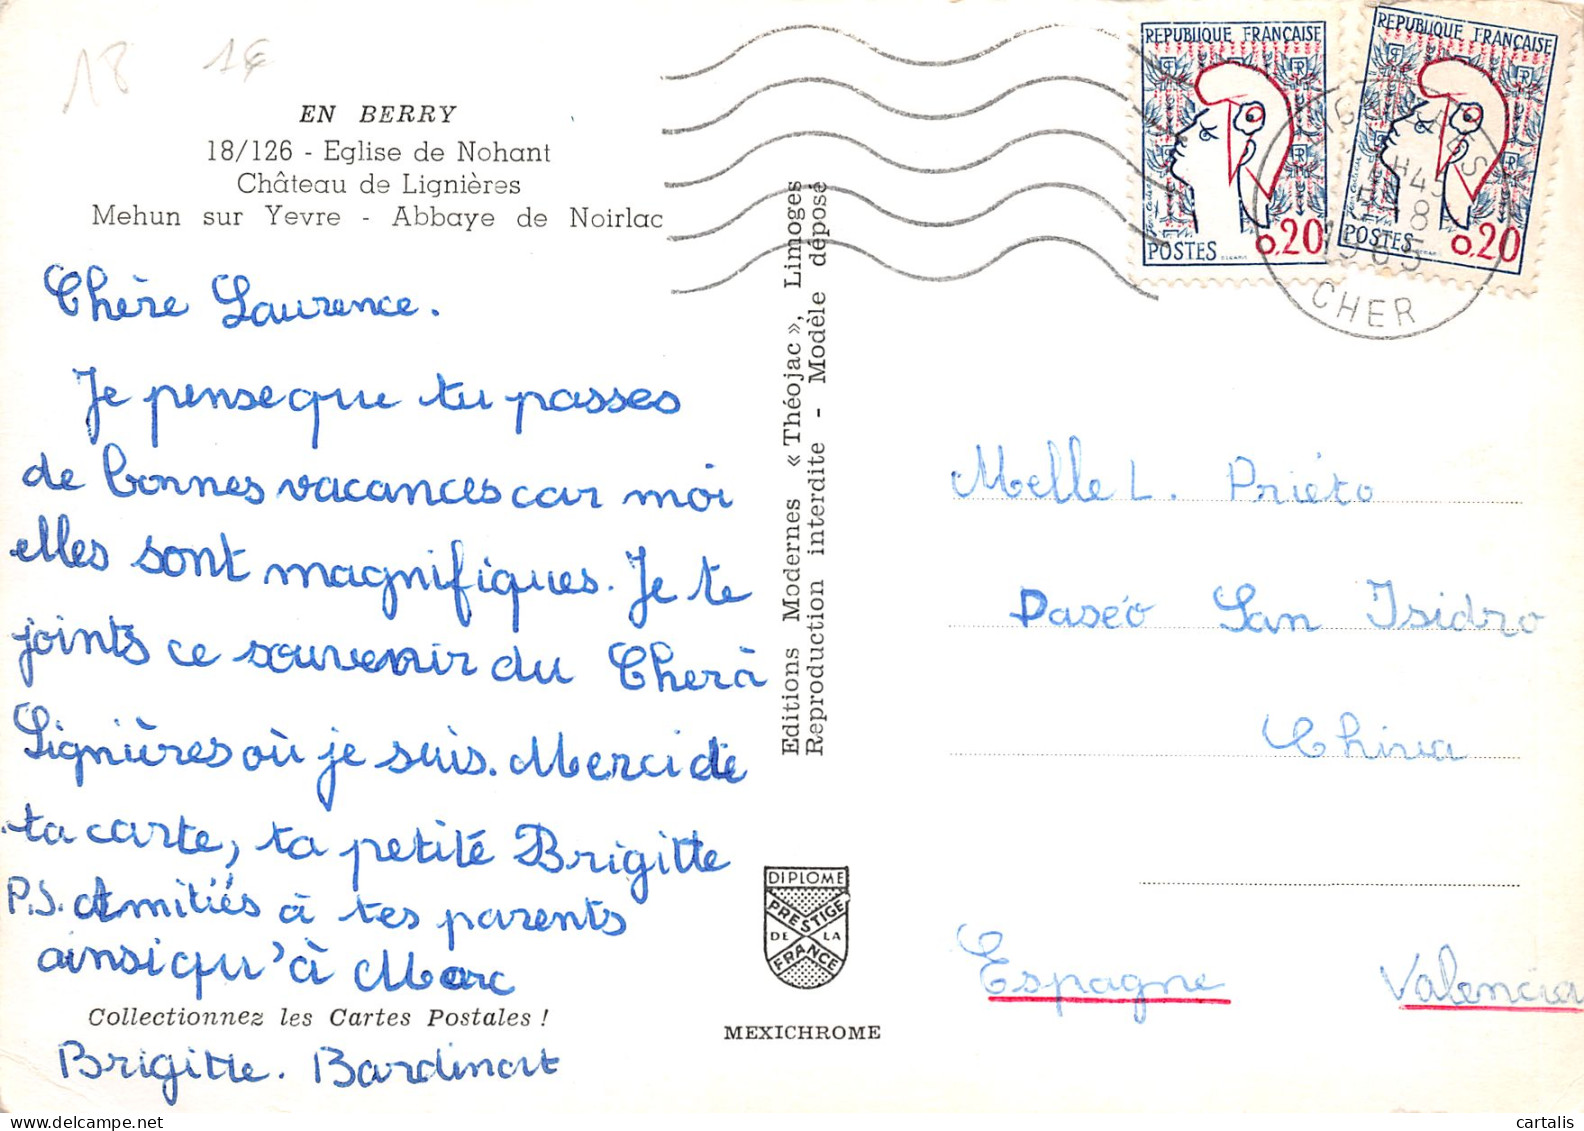 18 1€
EN BERRY
18/126 - Eglise de Nohant
Château de Lignières
Mehun sur Yevre - Abbaye de Noirlac
Chère Laurence.
Je pense que tu passes
de bonnes vacances car moi
elles sont magnifiques. Je te
joints ce souvenir du Cher à
Lignières où je suis. Merci de
ta carte, ta petite Brigitte
P.S. Amitiés à tes parents
ainsi qu'à Marc
Collectionnez les Cartes Postales !
Brigitte. Bardinat
Editions Modernes « Théojac », Limoges
Reproduction interdite - Modèle déposé
DIPLOME
PRESTIGE
DE LA
FRANCE
MEXICHROME
REPUBLIQUE FRANÇAISE
POSTES 0,20
REPUBLIQUE FRANÇAISE
POSTES 0,20
H45
8
1965
CHER
Melle L. Priéto
Paséo San Isidro
Chiva
Espagne Valencia
cartalis